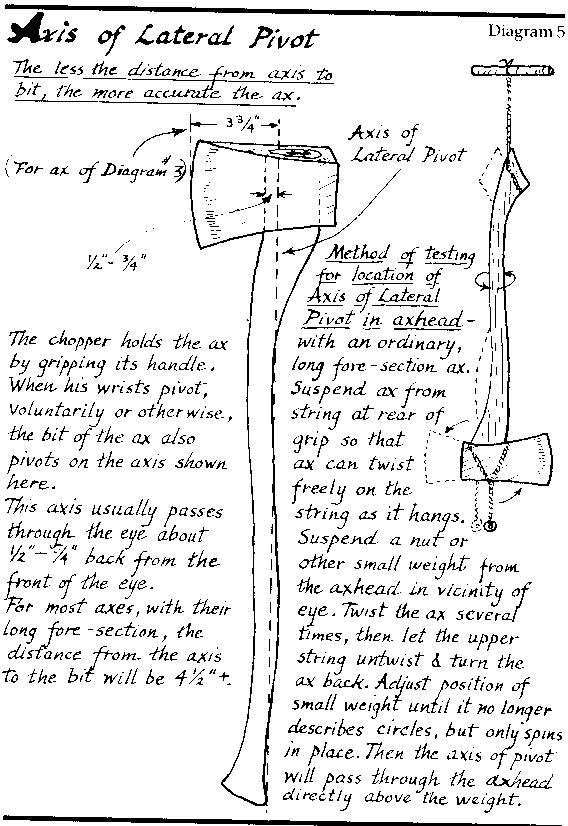 Axis of Lateral Pivot
Diagram 5
The less the distance from axis to
bit, the more accurate the ax.
3 3/4"
(For ax of Diagram #3)
1/2"- 3/4"
Axis of
Lateral Pivot
The chopper holds the ax
by gripping its handle.
When his wrists pivot,
voluntarily or otherwise,
the bit of the ax also
pivots on the axis shown
here.
This axis usually passes
through the eye about
1/2"-3/4" back from the
front of the eye.
For most axes, with their
long fore-section, the
distance from the axis
to the bit will be 4 1/2"+.
Method of testing
for location of
Axis of Lateral
Pivot in axhead-
with an ordinary,
long fore-section ax.
Suspend ax from
string at rear of
grip so that
ax can twist
freely on the
string as it hangs.
Suspend a nut or
other small weight from
the axhead in vicinity of
eye. Twist the ax several
times, then let the upper
string untwist & turn the
ax back. Adjust position of
small weight until it no longer
describes circles, but only spins
in place. Then the axis of pivot
will pass through the axhead
directly above the weight.